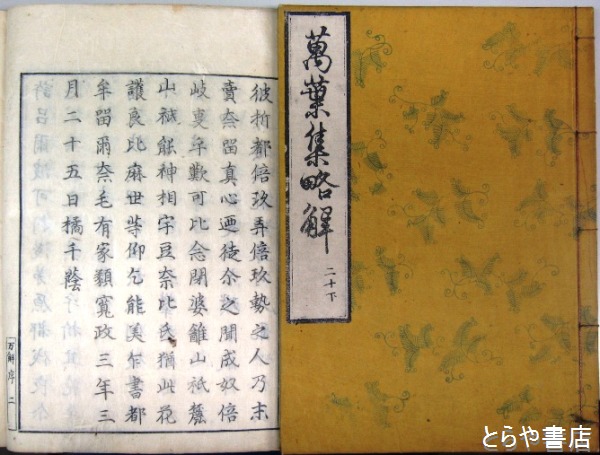 萬葉集略解
二十下
彼折都倍玖弄倍玖勢之人乃末
賣奈留真心迺徒尒之聞成奴倍
岐叓乎歎可比念閇婆雖山祇麓
山祇能神相宇豆奈比氐猶此花
護良比麻世等仰乞能美乍書都
牟留爾奈毛有家類寛政三年三
月二十五日橘千蔭
万解序 二
とらや書店